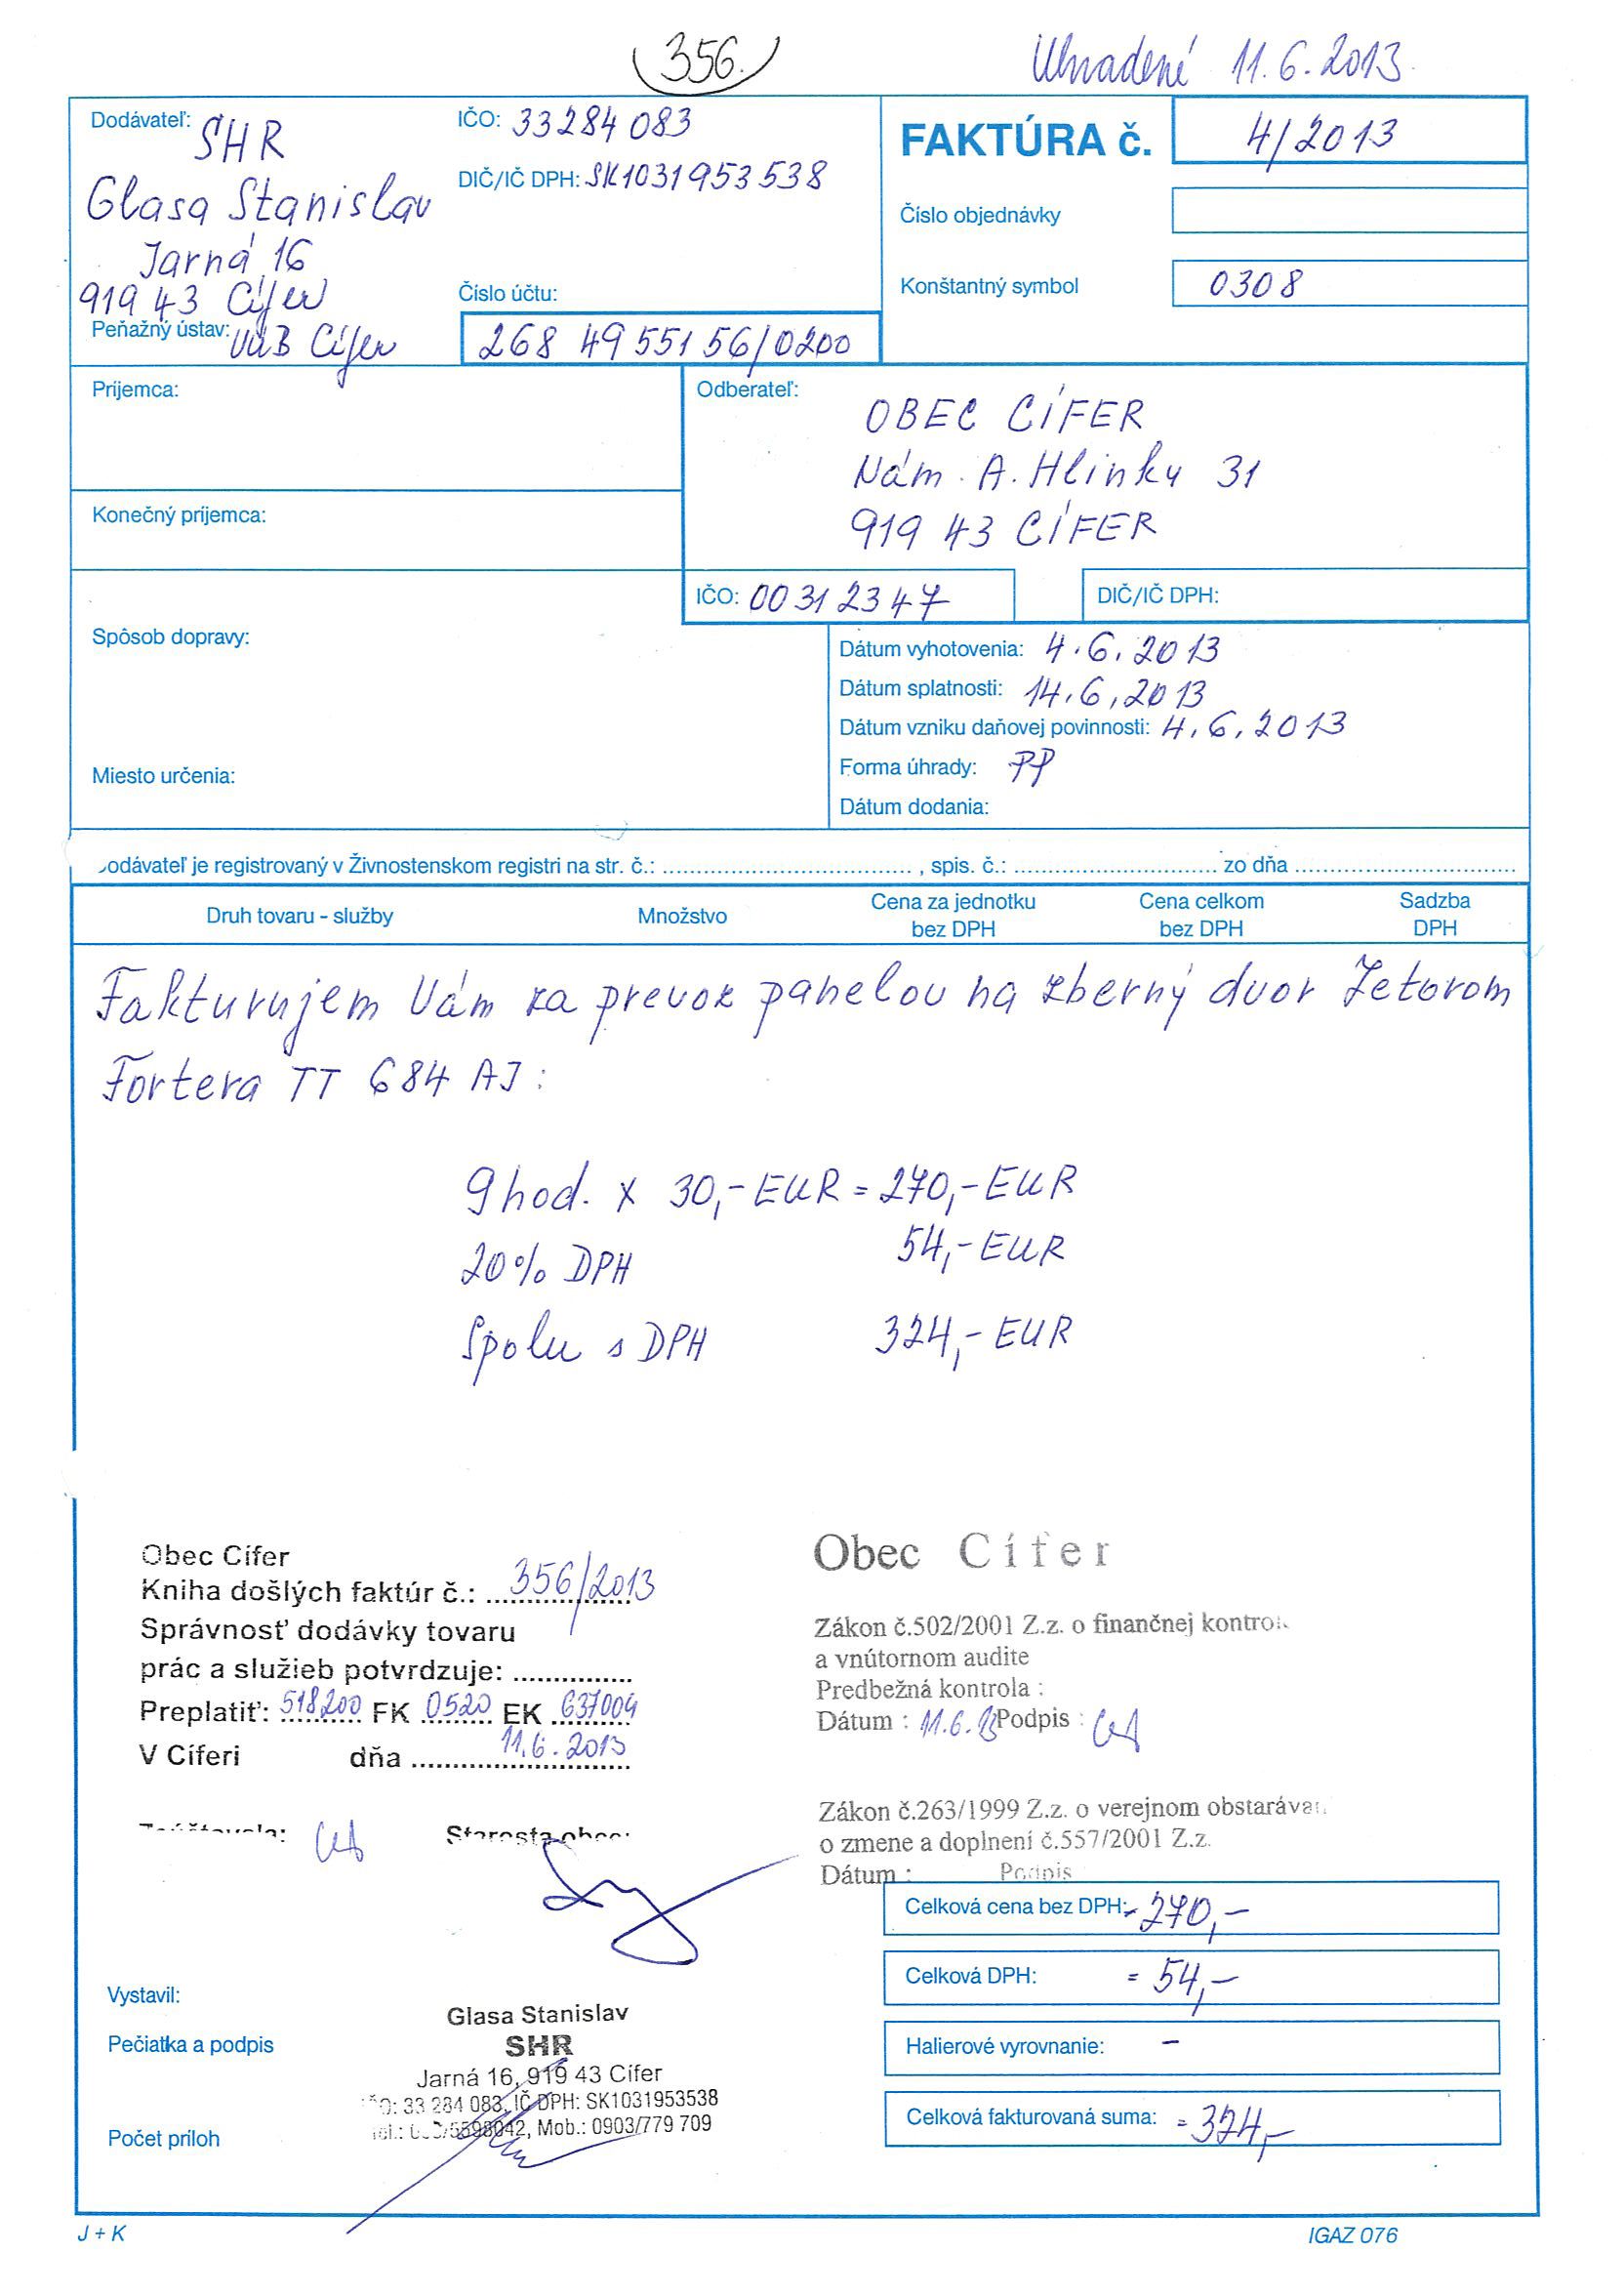 356.
Uhradené 11.6.2013
Dodávateľ: SHR
Glasa Stanislav
Jarná 16
919 43 Cífer
Peňažný ústav: VÚB Cífer
IČO: 33284083
DIČ/IČ DPH: SK1031953538
Číslo účtu:
268 49 551 56/0200
FAKTÚRA č. 4/2013
Číslo objednávky
Konštantný symbol 0308
Príjemca:
Konečný príjemca:
Odberateľ:
OBEC CÍFER
Nám. A. Hlinky 31
919 43 CÍFER
IČO: 00312347
DIČ/IČ DPH:
Spôsob dopravy:
Miesto určenia:
Dátum vyhotovenia: 4.6.2013
Dátum splatnosti: 14.6.2013
Dátum vzniku daňovej povinnosti: 4.6.2013
Forma úhrady: PP
Dátum dodania:
odávateľ je registrovaný v Živnostenskom registri na str. č.: ........ , spis. č.: ........ zo dňa ........
Druh tovaru - služby Množstvo Cena za jednotku bez DPH Cena celkom bez DPH Sadzba DPH
Fakturujem Vám za prevoz panelov na zberný dvor Zetorom
Fortera TT 684 AJ:
9 hod. x 30,- EUR = 270,- EUR
20% DPH 54,- EUR
Spolu s DPH 324,- EUR
Obec Cífer
Kniha došlých faktúr č.: 356/2013
Správnosť dodávky tovaru
prác a služieb potvrdzuje: ............
Preplatiť: 518200 FK 0520 EK 637004
V Cíferi dňa 11.6.2013
Starosta obce:
Obec Cífer
Zákon č.502/2001 Z.z. o finančnej kontrol
a vnútornom audite
Predbežná kontrola :
Dátum : 11.6.13 Podpis :
Zákon č.263/1999 Z.z. o verejnom obstaráva
o zmene a doplnení č.557/2001 Z.z.
Dátum : Podpis
Celková cena bez DPH: - 270,-
Celková DPH: = 54,-
Halierové vyrovnanie: -
Celková fakturovaná suma: = 324,-
Vystavil:
Pečiatka a podpis
Počet príloh
Glasa Stanislav
SHR
Jarná 16, 919 43 Cífer
IČO: 33 284 083, IČ DPH: SK1031953538
Mob.: 0903/779 709
J + K
IGAZ 076